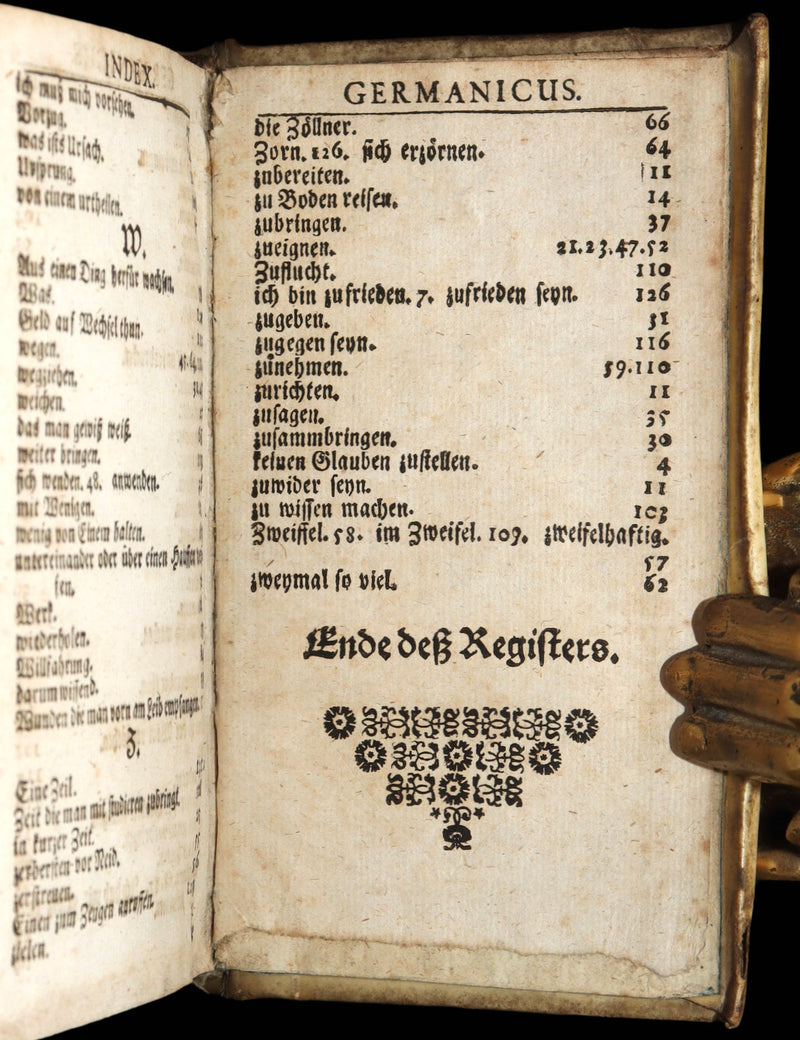 INDEX.
ich muß mich vorsehen.
Vorzug.
was ists Ursach.
Ursprung.
von einem urtheilen.
W.
Aus einen Ding herfür wachsen.
Was.
Geld auf Wechsel thun.
wegen.
wegziehen.
weichen.
das man gewiß weiß.
weiter bringen.
sich wenden. 48. anwenden.
mit Wenigen.
wenig von Einem halten.
untereinander oder über einen
sen.
Werk.
wiederholen.
Willfahrung.
darum wissend.
Wunden die man vorn am Leib empfangen
Z.
Eine Zeil.
Zeit die man mit studieren zubringt.
in kurzer Zeit.
zerbersten vor Neid.
zerstreuen.
Einen zum Zeugen anruffen.
zielen.
GERMANICUS.
die Zöllner. 66
Zorn. 126. sich erzörnen. 64
zubereiten. 111
zu Boden reisen. 14
zubringen. 37
zueignen. 21.23.47.52
Zuflucht. 110
ich bin zufrieden. 7. zufrieden seyn. 126
zugeben. 31
zugegen seyn. 116
zunehmen. 59.110
zurichten. 11
zusagen. 35
zusammbringen. 30
keinen Glauben zustellen. 4
zuwider seyn. 11
zu wissen machen. 103
Zweiffel. 58. im Zweifel. 109. zweifelhaftig.
57
zweymal so viel. 62
Ende deß Registers.